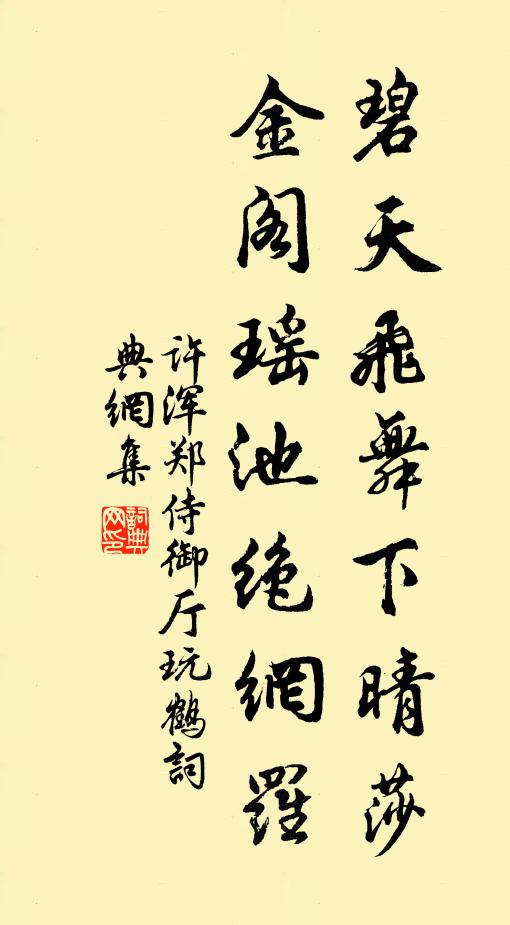 碧天飛舞下晴莎
金阁瑶池绝網羅
许浑郑侍御厅玩鹤詞
典網集
詞典网印